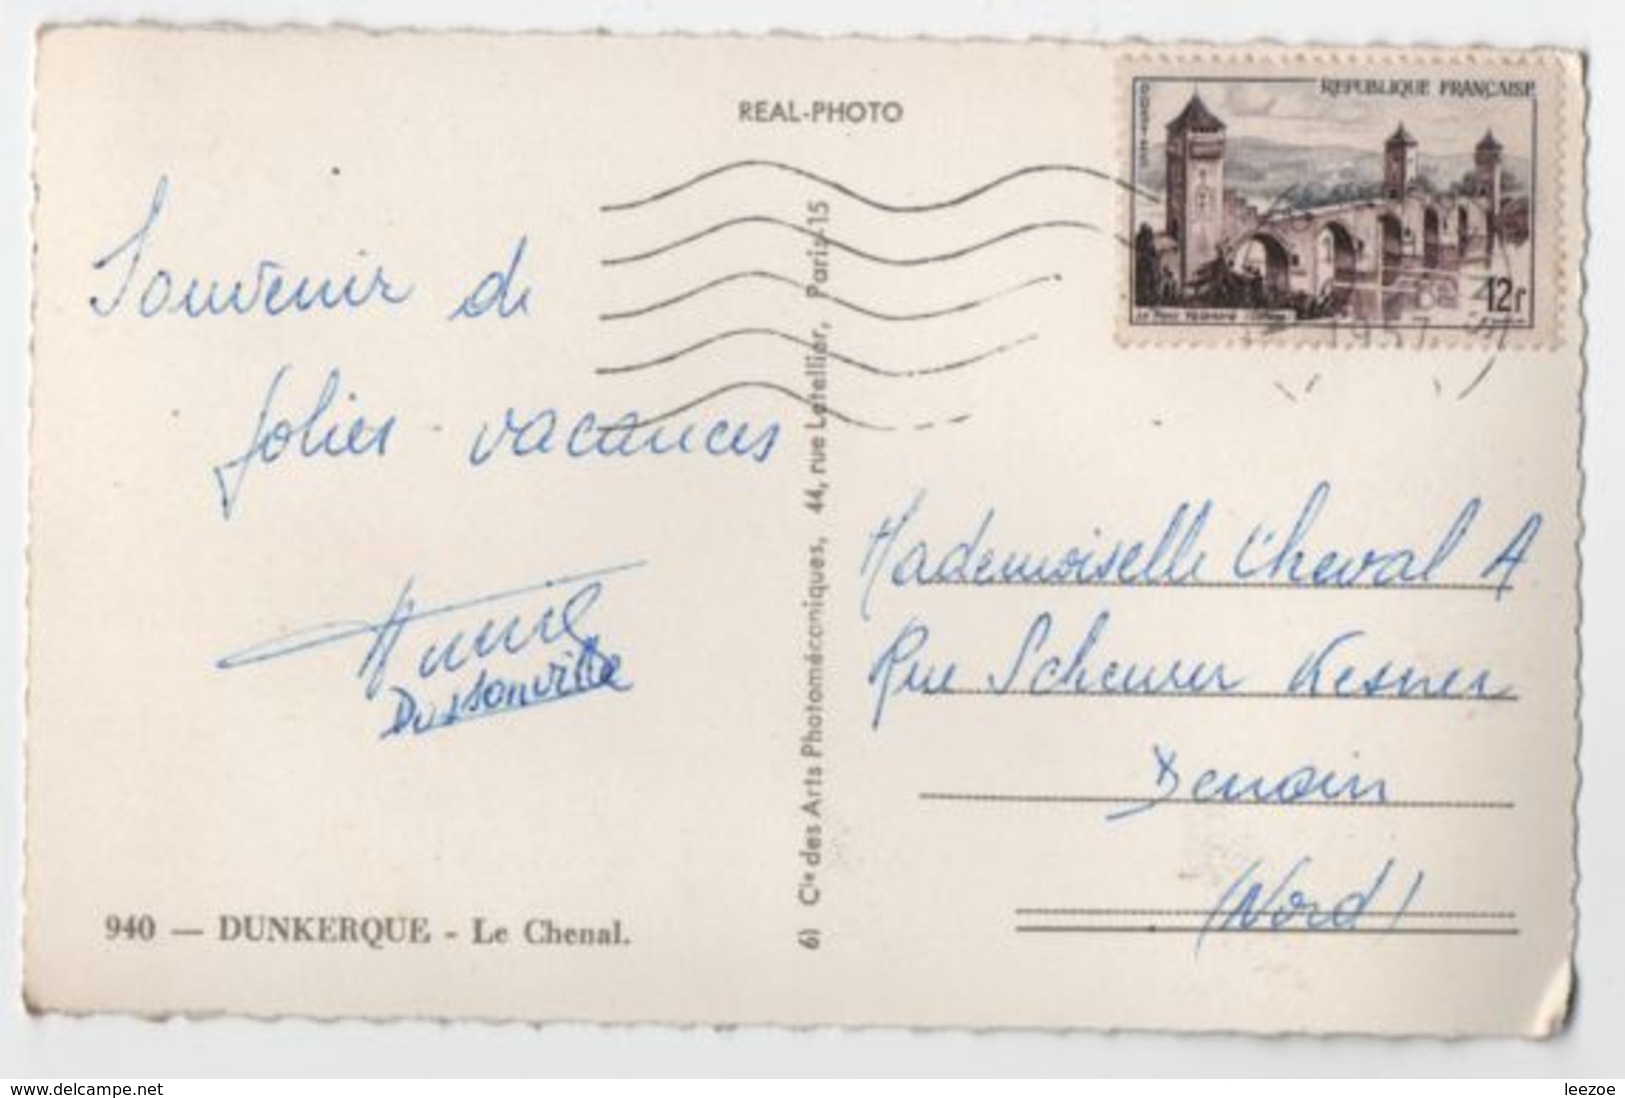 REAL-PHOTO
REPUBLIQUE FRANÇAISE
12f
1957
Souvenir de
jolies vacances
Annie
Dussonville
940 — DUNKERQUE - Le Chenal.
6) Cie des Arts Photomécaniques, 44, rue Letellier, Paris-15
Mademoiselle Cheval A
Rue Scheurer Kesner
Denain
(Nord)
www.delcampe.net
leezoe